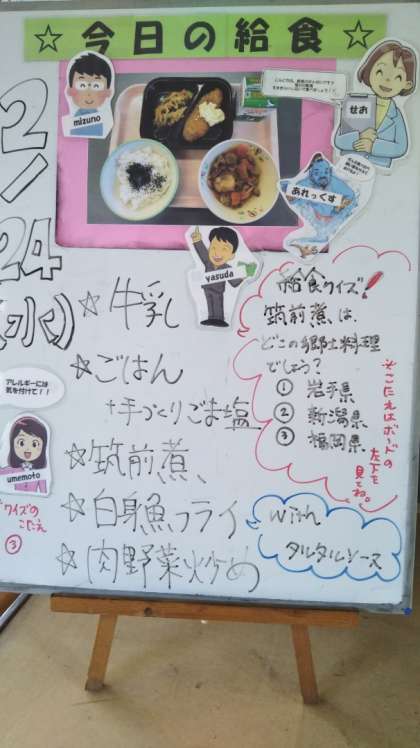 ☆今日の給食☆
mizuno
せお
あれっくす
yasuda
2/24
(水)
☆牛乳
☆ごはん
+手づくりごま塩
☆筑前煮
☆白身魚フライ
☆肉野菜炒め
給食クイズ!
筑前煮は、
どこの郷土料理
でしょう?
① 岩手県
② 新潟県
③ 福岡県
※こたえはボードの
左下を
見てね。
with
タルタルソース
アレルギーには
気を付けて!!
umemoto
クイズの
こたえ
③